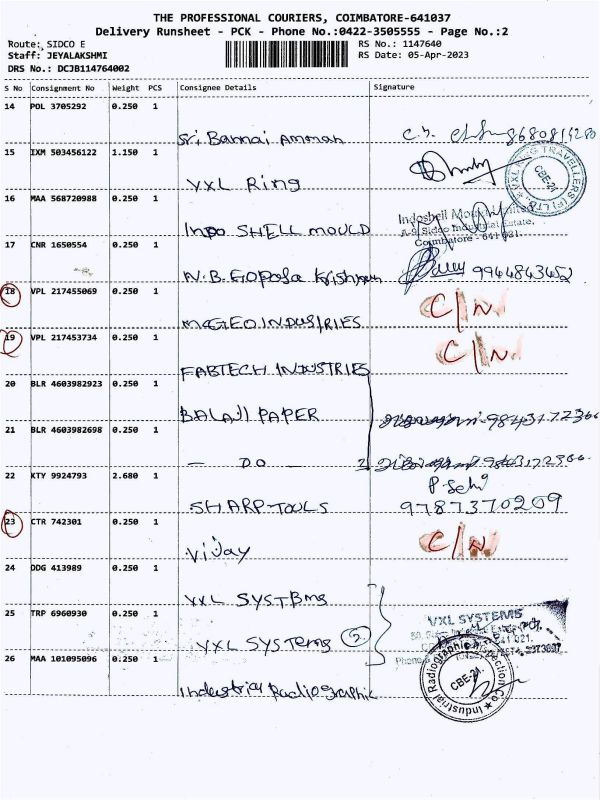 THE PROFESSIONAL COURIERS, COIMBATORE-641037
Delivery Runsheet - PCK - Phone No.:0422-3505555 - Page No.:2
Route: SIDCO E RS No.: 1147640
Staff: JEYALAKSHMI RS Date: 05-Apr-2023
DRS No.: DCJB114764002
S No Consignment No Weight PCS Consignee Details Signature
14 POL 3705292 0.250 1
Sri Bannai Amman
15 IXM 503456122 1.150 1
VXL Ring
VXL RING TRAVELLERS (P) LTD
CBE-21
16 MAA 568720988 0.250 1
INDO SHELL MOULD
Indoshell Mould Limited
A-9, Sidco Industrial Estate,
Coimbatore - 641 021.
17 CNR 1650554 0.250 1
N.B. Gopala Krishnan 9944843452
18 VPL 217455069 0.250 1 C/N
MAGEO.INDUSTRIES
19 VPL 217453734 0.250 1 C/N
FABTECH INDUSTRIES
20 BLR 4603982923 0.250 1
BALAJI PAPER 9843172366
21 BLR 4603982698 0.250 1
— DO — 2 9843172366
22 KTY 9924793 2.680 1
SHARP TOOLS 9787370209
23 CTR 742301 0.250 1 C/N
Vijay
24 DDG 413989 0.250 1
VXL SYSTEMS
25 TRP 6960930 0.250 1
VXL SYSTEMS 2
VXL SYSTEMS
26 MAA 101095096 0.250 1
Industrial Radiographic
Industrial Radiographic Inspection Co
CBE-21